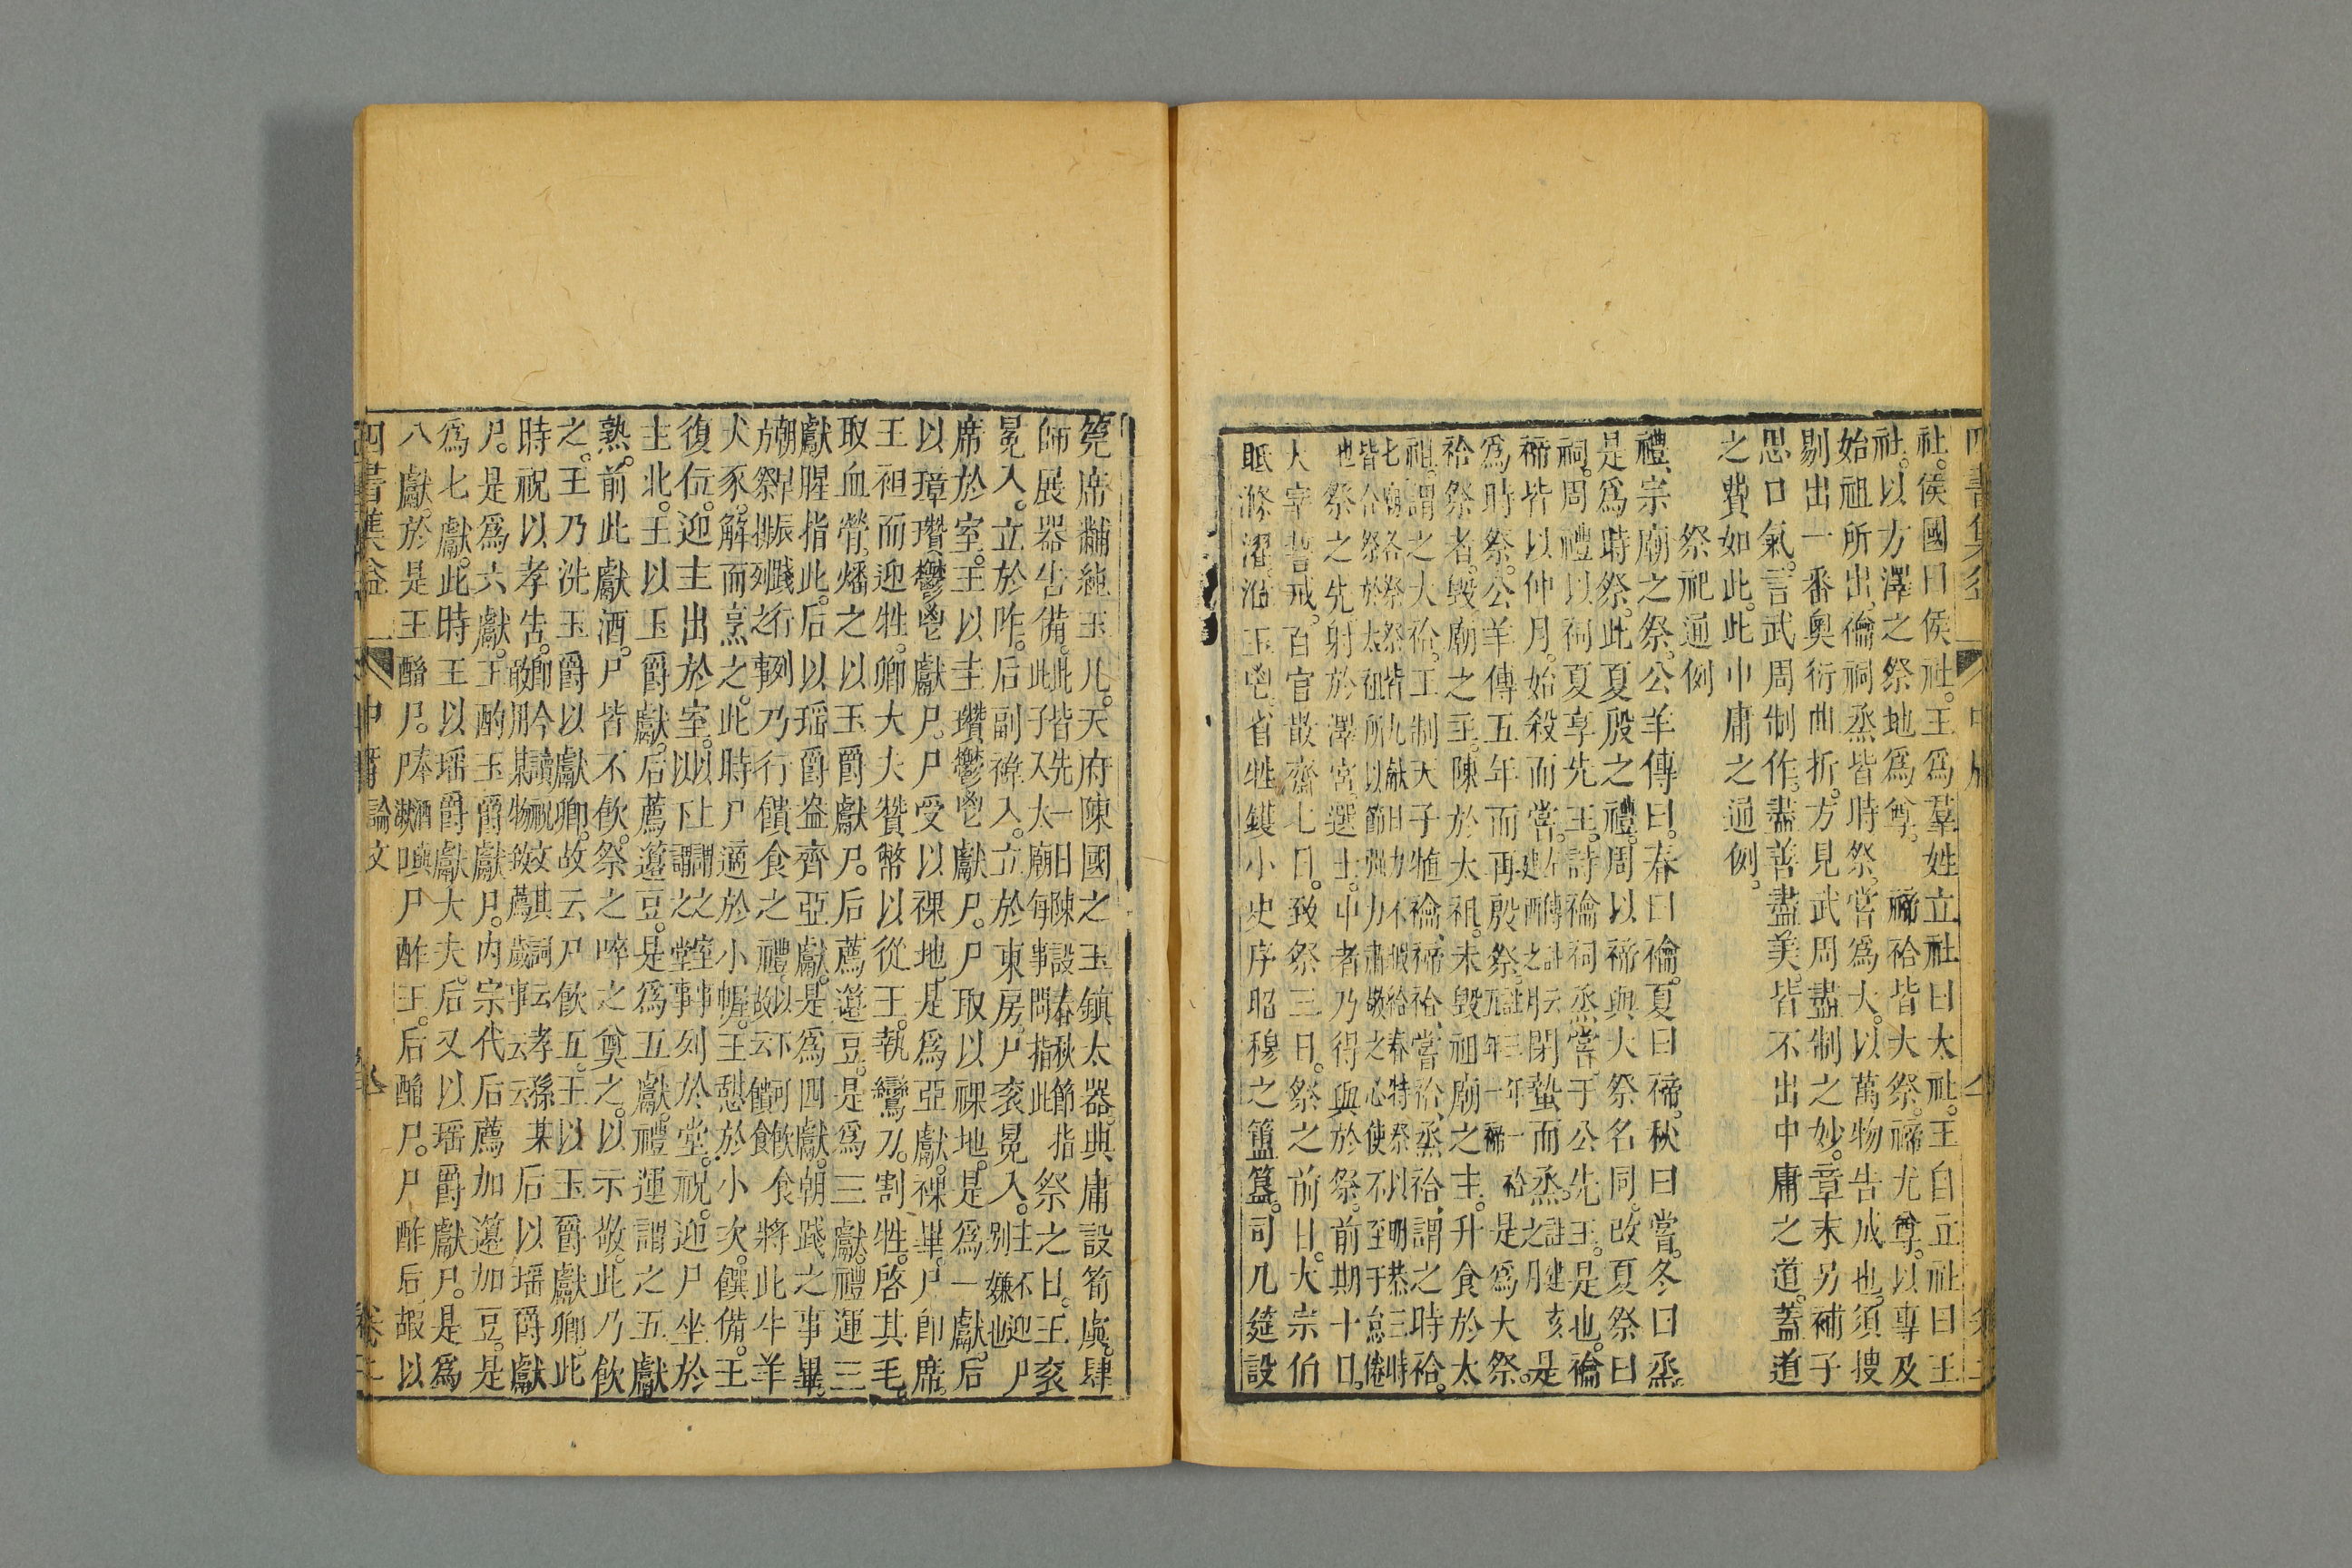 社侯國曰侯社。王爲羣姓立社曰太社。王自立社曰王
社。以方澤之祭地爲尊。禘祫皆大祭。禘尤尊。以專及
始祖所出。禴祠烝皆時祭。嘗爲大。以萬物告成也。須搜
剔出一番奧衍曲折。方見武周盡制之妙。章末另補子
思口氣。言武周制作。盡善盡美。皆不出中庸之道。蓋道
之費如此。此中庸之通例。
祭祀通例
禮、宗廟之祭。公羊傳曰。春曰禴。夏曰禘。秋曰嘗。冬曰烝
是爲時祭。此夏殷之禮。周以禘與大祭名同。改夏祭曰
祠。周禮以祠夏享先王。詩禴祠烝嘗。于公先王。是也。禴
禘皆以仲月。始殺而嘗。左傳註云建酉之月閉蟄而烝。註建亥之月是
爲時祭。公羊傳五年而再殷祭。註三年一祫五年一禘是爲大祭。
祫祭者。毀廟之主。陳於太祖。未毀祖廟之主。升食於太
祖。謂之大祫。王制天子犆禴、禘祫、嘗祫、烝祫、謂之時祫。
七廟各祭祭皆九獻日力不暇給春特祭以明恭三時
皆合祭於太祖所以節強力肅敬之心使不至于怠倦
也祭之先射於澤宮。選士。中者乃得與於祭。前期十日。
大宰誓戒。百官散齊七日。致祭三日。祭之前日。大宗伯
眡滌濯涖玉鬯。省牲鑊小史序昭穆之簠簋。司几筵設
筵席黼純玉几。天府陳國之玉鎮太器。典庸設筍虡。肆
師展器告備。此皆先一日陳設春秋節指此子入太廟每事問指此祭之日。王袞
冕入。立於阼。后副褘入。立於東房。尸袞冕入。王不迎尸別嫌也
席於室。王以圭瓚鬱鬯獻尸。尸取以祼地。是爲一獻。后
以璋瓚鬱鬯獻尸。尸受以祼地。是爲亞獻。祼畢。尸卽席。
王袒而迎牲。卿大夫贊幣以從王。執鸞刀。割牲。啓其毛。
取血膋。燔之以玉爵獻尸。后薦籩豆。是爲三獻。禮運三
獻腥指此。后以瑶爵盎齊亞獻。是爲四獻。朝踐之事畢。
朝踐行列之事乃行饋食之禮以下可飲食故云饋食將此牛羊
犬豕。解而烹之。此時尸適於小幄。王憇於小次。饌備。王
復位。迎主出於室。以上謂之室事以下謂之堂事列於堂。祝。迎尸坐於
主北。王以玉爵獻。后薦籩豆。是爲五獻。禮運謂之五獻
熟。前此獻酒。尸皆不飲。祭之啐之奠之。以示敬。此乃飲
之。王乃洗玉爵以獻卿。故云尸飲五。王以玉爵獻卿。此
時祝以孝告。卽今讀祝文其詞云孝孫某敢用某物致薦歲事云云后以瑶爵獻
尸。是爲六獻。王酌玉爵獻尸。内宗代后薦加籩加豆。是
爲七獻。此時王以瑶爵獻大夫。后又以瑶爵獻尸。是爲
八獻。於是王酳尸。奉酒尸漱口尸酢王。后酳尸。尸酢后嘏以
四書集益
中庸
論文